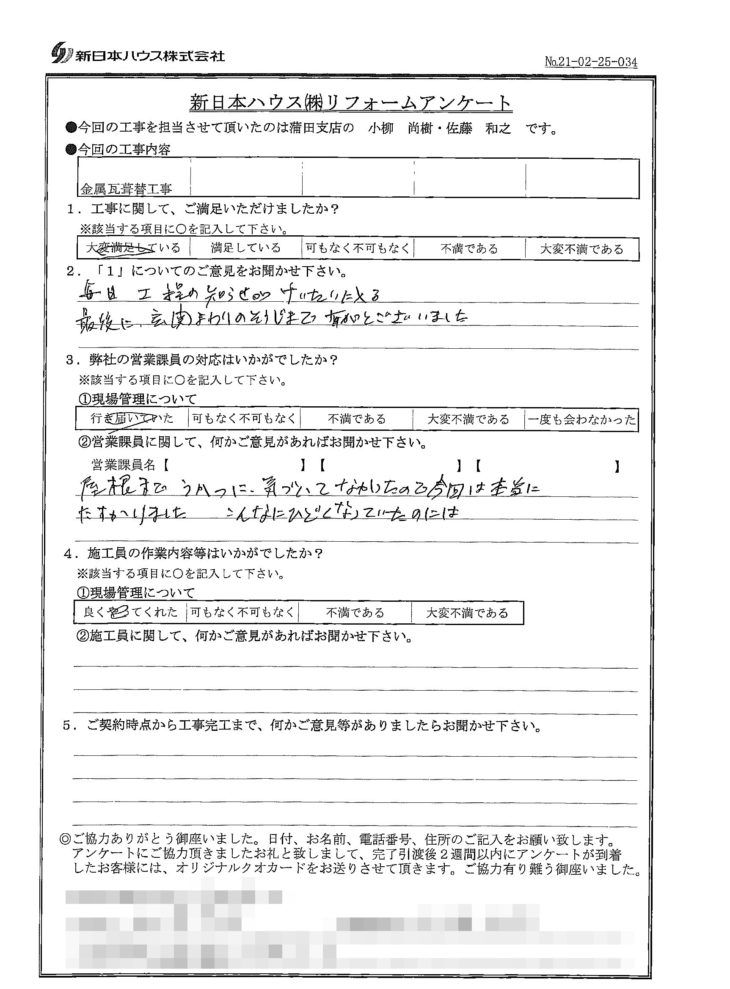 新日本ハウス株式会社
№21-02-25-034
新日本ハウス㈱リフォームアンケート
●今回の工事を担当させて頂いたのは蒲田支店の 小柳 尚樹・佐藤 和之 です。
●今回の工事内容
金属瓦葺替工事
1．工事に関して、ご満足いただけましたか？
※該当する項目に○を記入して下さい。
大変満足している 満足している 可もなく不可もなく 不満である 大変不満である
2．「1」についてのご意見をお聞かせ下さい。
毎日 工程の知らせ
最後に、玄関まわりのそうじまで ございました
3．弊社の営業課員の対応はいかがでしたか？
※該当する項目に○を記入して下さい。
①現場管理について
行き届いていた 可もなく不可もなく 不満である 大変不満である 一度も会わなかった
②営業課員に関して、何かご意見があればお聞かせ下さい。
営業課員名【 】【 】【 】
屋根まで うかつに、気づいてなかったので今回は本当に
たすかりました こんなにひどくなっていたのには
4．施工員の作業内容等はいかがでしたか？
※該当する項目に○を記入して下さい。
①現場管理について
良くやってくれた 可もなく不可もなく 不満である 大変不満である
②施工員に関して、何かご意見があればお聞かせ下さい。
5．ご契約時点から工事完工まで、何かご意見等がありましたらお聞かせ下さい。
◎ご協力ありがとう御座いました。日付、お名前、電話番号、住所のご記入をお願い致します。
アンケートにご協力頂きましたお礼と致しまして、完了引渡後２週間以内にアンケートが到着
したお客様には、オリジナルクオカードをお送りさせて頂きます。ご協力有り難う御座いました。